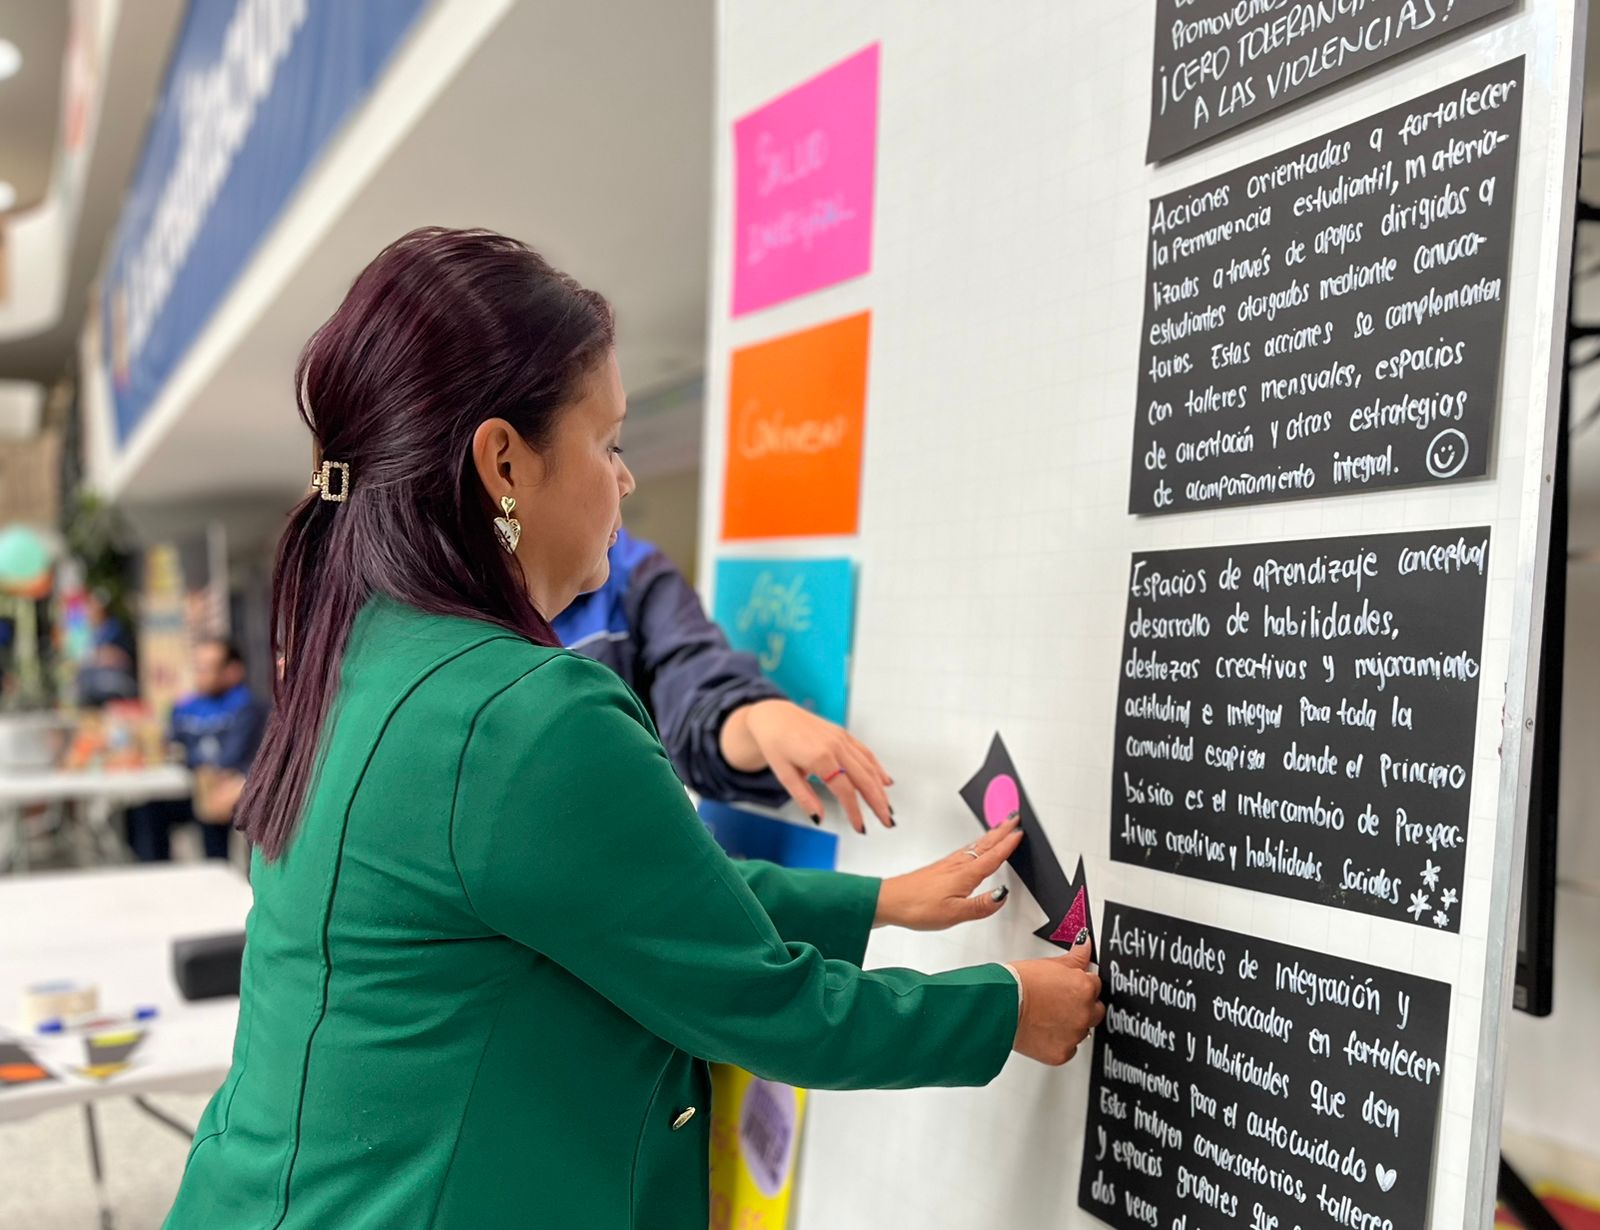 Promovemos
¡CERO TOLERANCIA
A LAS VIOLENCIAS!
Acciones orientadas a fortalecer
la Permanencia estudiantil, materia-
lizadas a través de apoyos dirigidos a
estudiantes otorgados mediante convoca-
torias. Estas acciones se complementan
con talleres mensuales, espacios
de orientación y otras estrategias
de acompañamiento integral.
Espacios de aprendizaje conceptual
desarrollo de habilidades,
destrezas creativas y mejoramiento
actitudinal e integral Para toda la
comunidad esapista donde el Principio
básico es el intercambio de Prespec-
tivas creativas y habilidades Sociales
Actividades de integración y
Participación enfocadas en fortalecer
capacidades y habilidades que den
Herramientas para el autocuidado
Estos incluyen conversatorios, talleres
y espacios grupales que
dos veces al
SALUD
INTEGRAL
ARTE
y